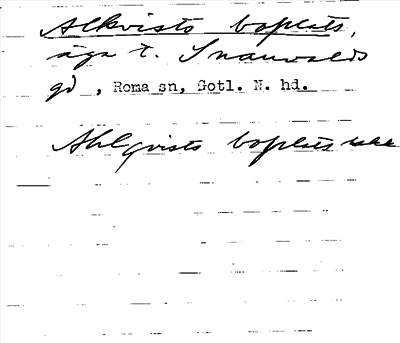 Alkvists boplats,
äga t. Snauvalds
gd, Roma sn, Gotl. N. hd.
Ahlqvists boplats